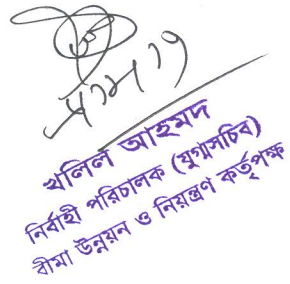 খলিল আহমদ
নির্বাহী পরিচালক (যুগ্মসচিব)
বীমা উন্নয়ন ও নিয়ন্ত্রণ কর্তৃপক্ষ